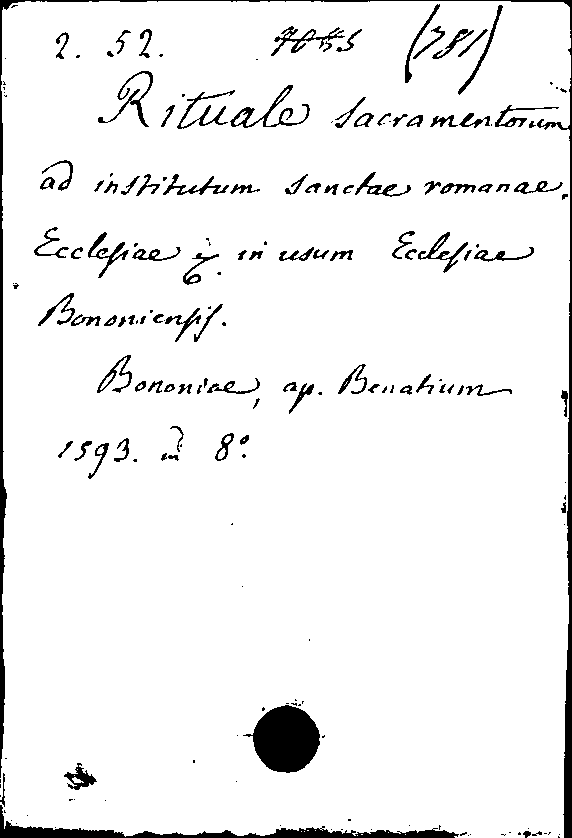 2. 52. (781)
Rituale sacramentorum
ad institutum sanctae romanae
Ecclesiae & in usum Ecclesiae
Bononiensis.
Bononiae, ap. Benatium
1593. in 8°.